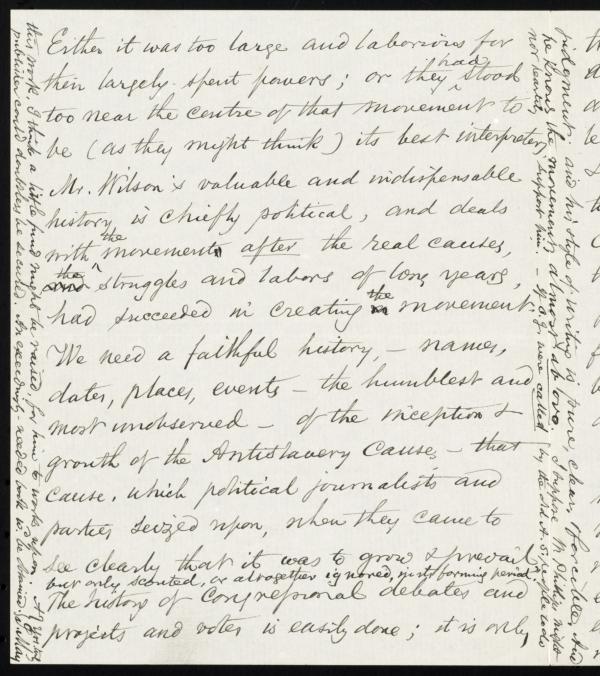 Either it was too large and laborious for
their largely-spent powers; or they had stood
too near the centre of that movement to
be (as they might think) its best interpreters.
Mr. Wilson's valuable and indispensable
history is chiefly political, and deals
with the movement after the real causes,
the struggles and labors of long years,
had succeeded in creating the movement.
We need a faithful history, – names,
dates, places, events – the humblest and
most unobserved – of the inception &
growth of the Antislavery Cause, – that
cause, which political journalists and
parties seized upon, when they came to
see clearly that it was to grow & prevail
but only scouted, or altogether ignored, in its forming period.
The history of Congressional debates and
projects and votes is easily done; it is only
judgment: and his style of writing is pure, clear, & forcible. And
he knows the movement almost ab ovo. I suppose W. Phillips might
not heartily support him. – If a.g. were called by the old A. S. people to do
this work, I think a little fund might be raised, for him to work upon. A
publisher could doubtless be secured. An exceedingly needed work